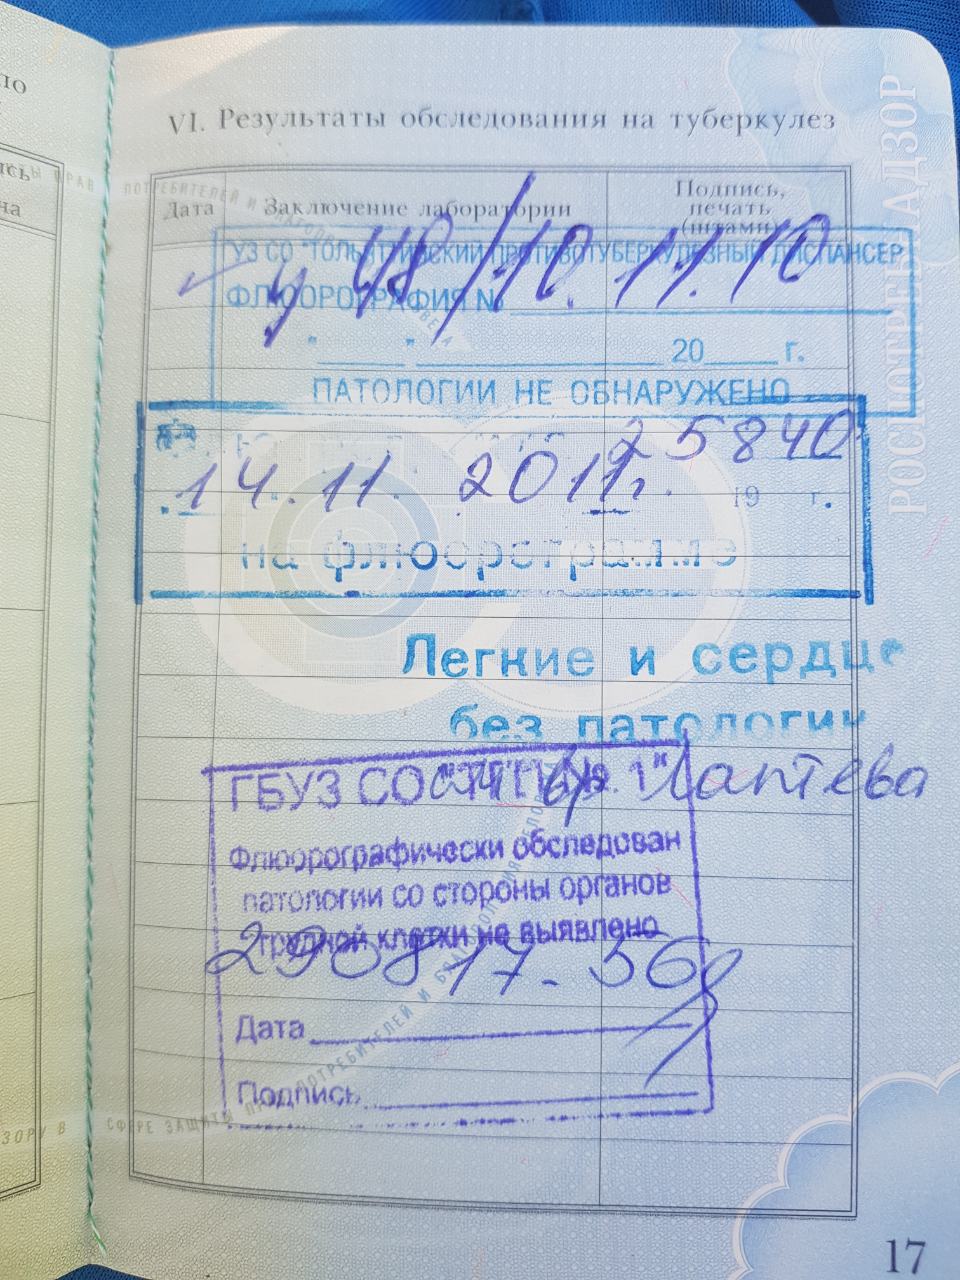 VI. Результаты обследования на туберкулез
Дата
Заключение лаборатории
Подпись,
печать
(штамп)
УЗ СО "ТОЛЬЯТТИНСКИЙ ПРОТИВОТУБЕРКУЛЕЗНЫЙ ДИСПАНСЕР
48/10. 11. 10
ФЛЮОРОГРАФИЯ №
" " 20 г.
ПАТОЛОГИИ НЕ ОБНАРУЖЕНО
25840
14. 11. 2011г. 19 г.
на флюорограмме
Легкие и сердце
без патологии
ГБУЗ СО "ТПД № 1"
Лаптева
Флюорографически обследован
патологии со стороны органов
грудной клетки не выявлено
290817-
Дата
Подпись
РОСПОТРЕБНАДЗОР
17